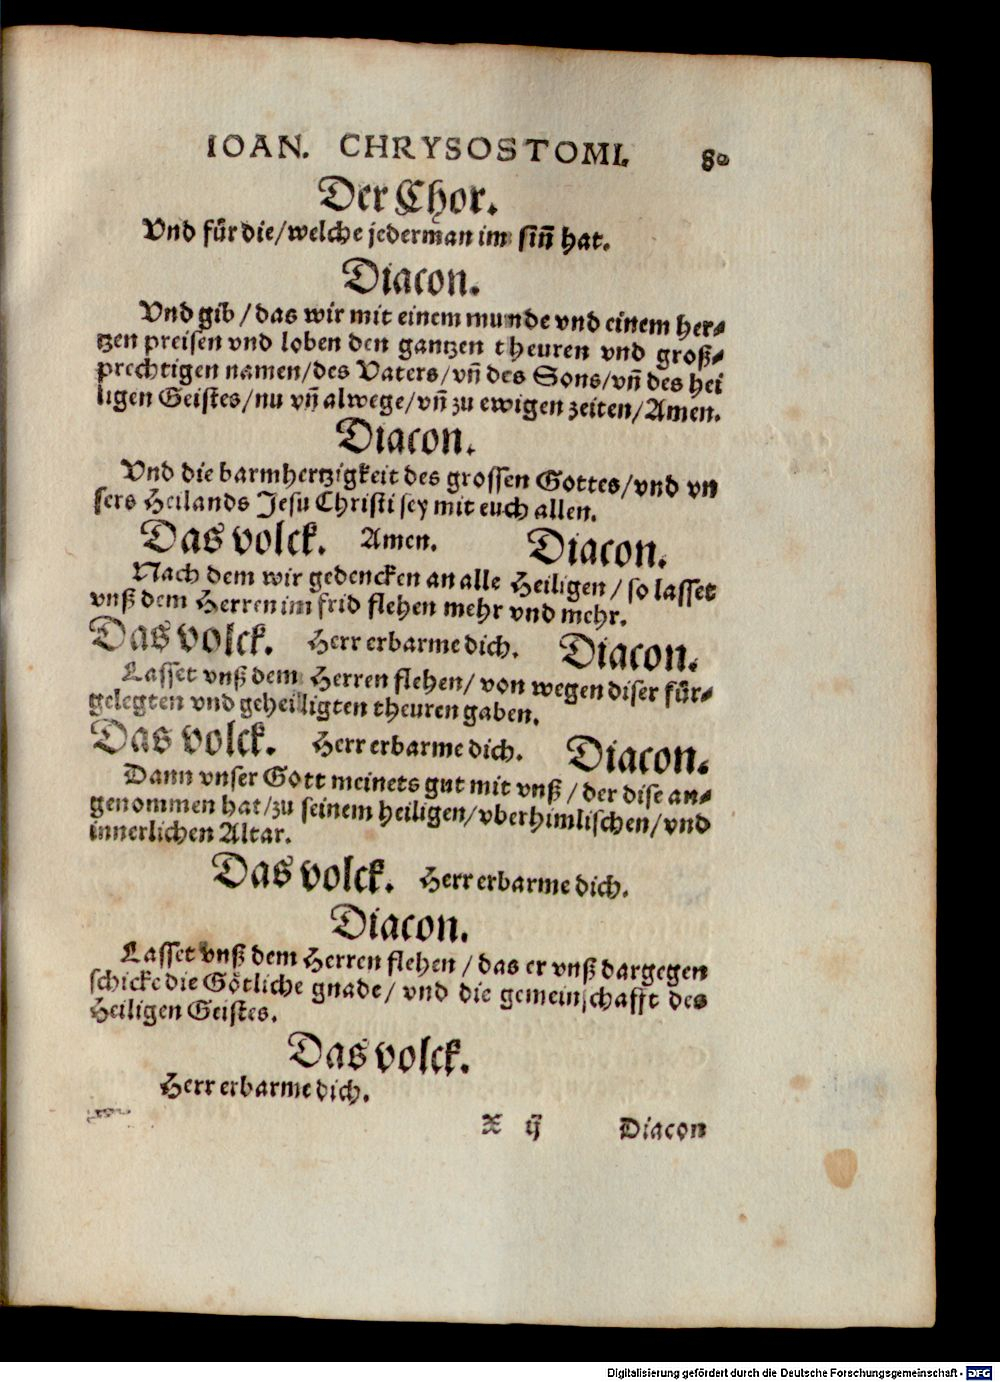 IOAN. CHRYSOSTOMI. 80
Der Chor.
Vnd für die/welche jederman im sinñ hat.
Diacon.
Vnd gib/das wir mit einem munde vnd einem her-
tzen preisen vnd loben den gantzen theuren vnd groß-
prechtigen namen/des Vaters/vñ des Sons/vñ des hei
ligen Geistes/nu vñ alwege/vñ zu ewigen zeiten/Amen.
Diacon.
Vnd die barmhertzigkeit des grossen Gottes/vnd vn
sers Heilands Jesu Christi sey mit euch allen.
Das volck. Amen. Diacon.
Nach dem wir gedencken an alle Heiligen/so lasset
vnß dem Herren im frid flehen mehr vnd mehr.
Das volck. Herr erbarme dich. Diacon.
Lasset vnß dem Herren flehen/von wegen diser für-
gelegten vnd geheiligten theuren gaben.
Das volck. Herr erbarme dich. Diacon.
Dann vnser Gott meinets gut mit vnß/der dise an-
genommen hat/zu seinem heiligen/vberhimlischen/vnd
innerlichen Altar.
Das volck. Herr erbarme dich.
Diacon.
Lasset vnß dem Herren flehen/das er vnß dargegen
schicke die Götliche gnade/vnd die gemeinschafft des
Heiligen Geistes.
Das volck.
Herr erbarme dich.
X ij Diacon
Digitalisierung gefördert durch die Deutsche Forschungsgemeinschaft - DFG